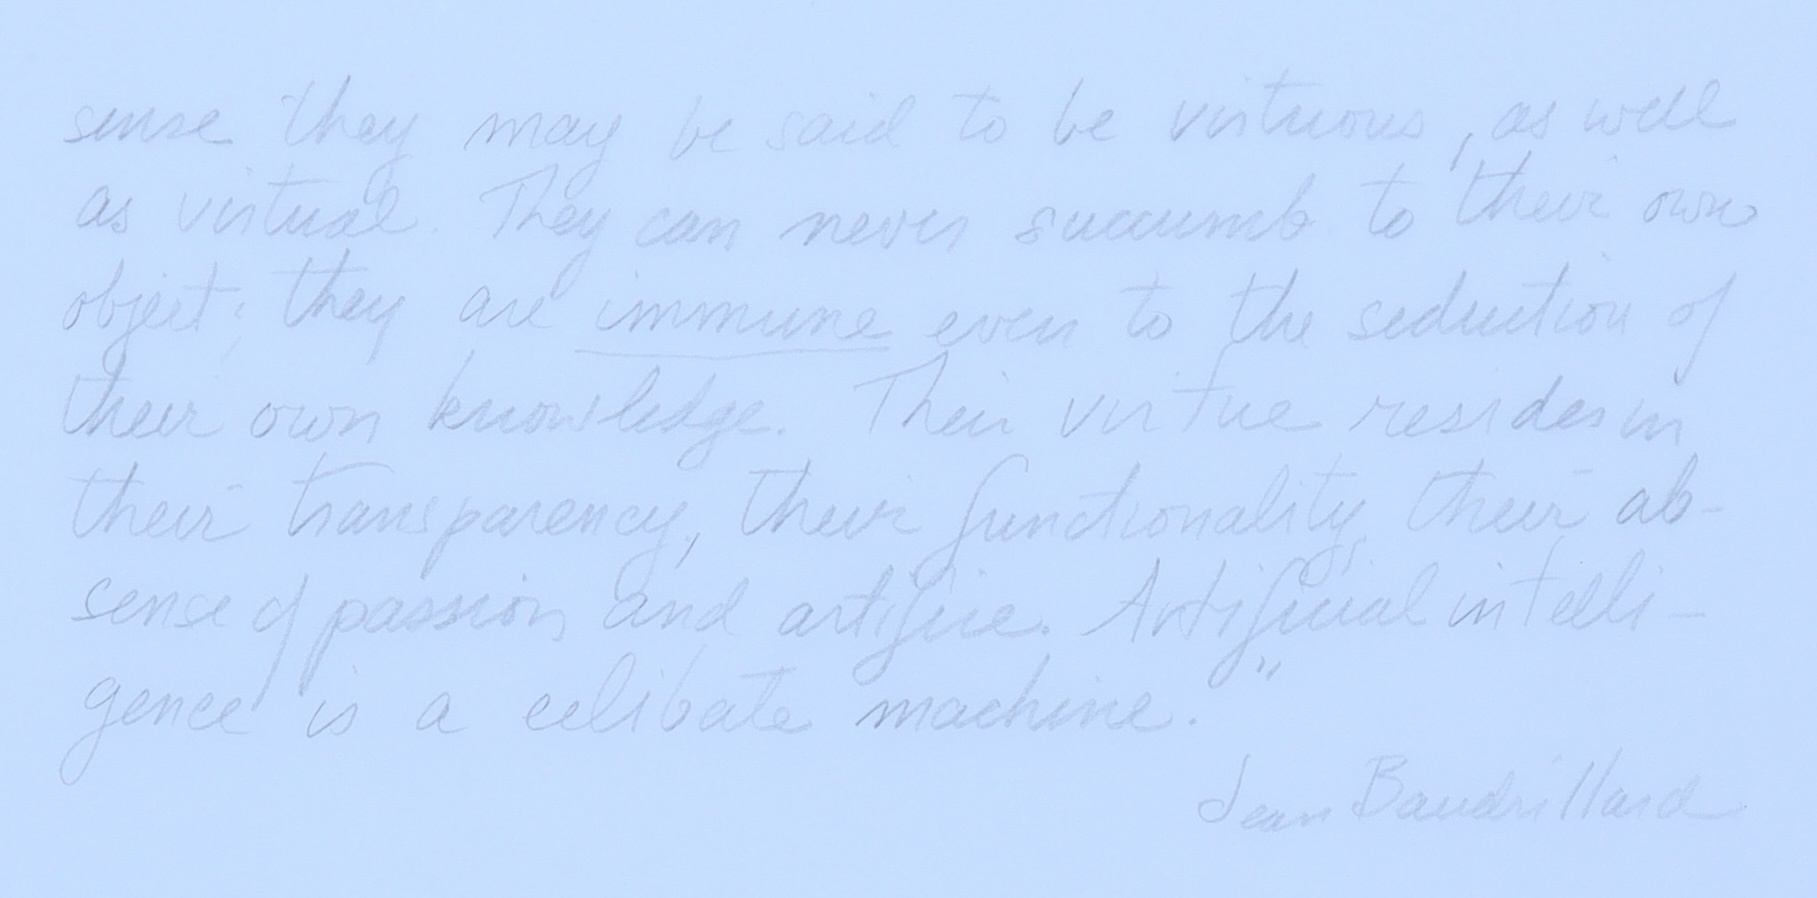 sense they may be said to be virtuous, as well
as virtual. They can never succumb to their own
object; they are immune even to the seduction of
their own knowledge. Their virtue resides in
their transparency, their functionality, their ab-
sense of passion and artifice. Artificial intelli-
gence is a celibate machine."
Jean Baudrillard